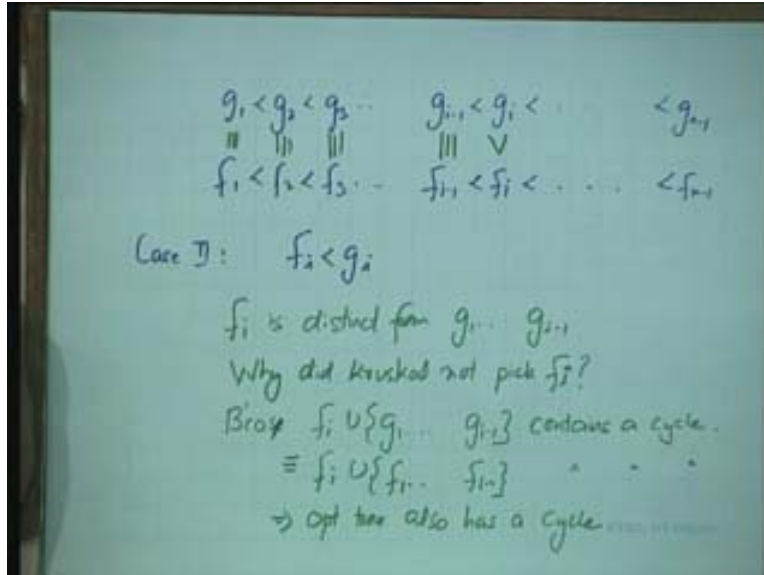 g₁ < g₂ < g₃ .. gᵢ₋₁ < gᵢ < . . < gₙ₋₁
||| ||| ||| ||| V
f₁ < f₂ < f₃ .. fᵢ₋₁ < fᵢ < . . . . < fₙ₋₁
Case I : fᵢ < gᵢ
fᵢ is distinct from g₁ ... gᵢ₋₁
Why did kruskal not pick fᵢ?
fᵢ ∪ {g₁ ... gᵢ₋₁} contains a cycle.
≡ fᵢ ∪ {f₁ .. fᵢ₋₁} " " "
⇒ opt tree also has a cycle